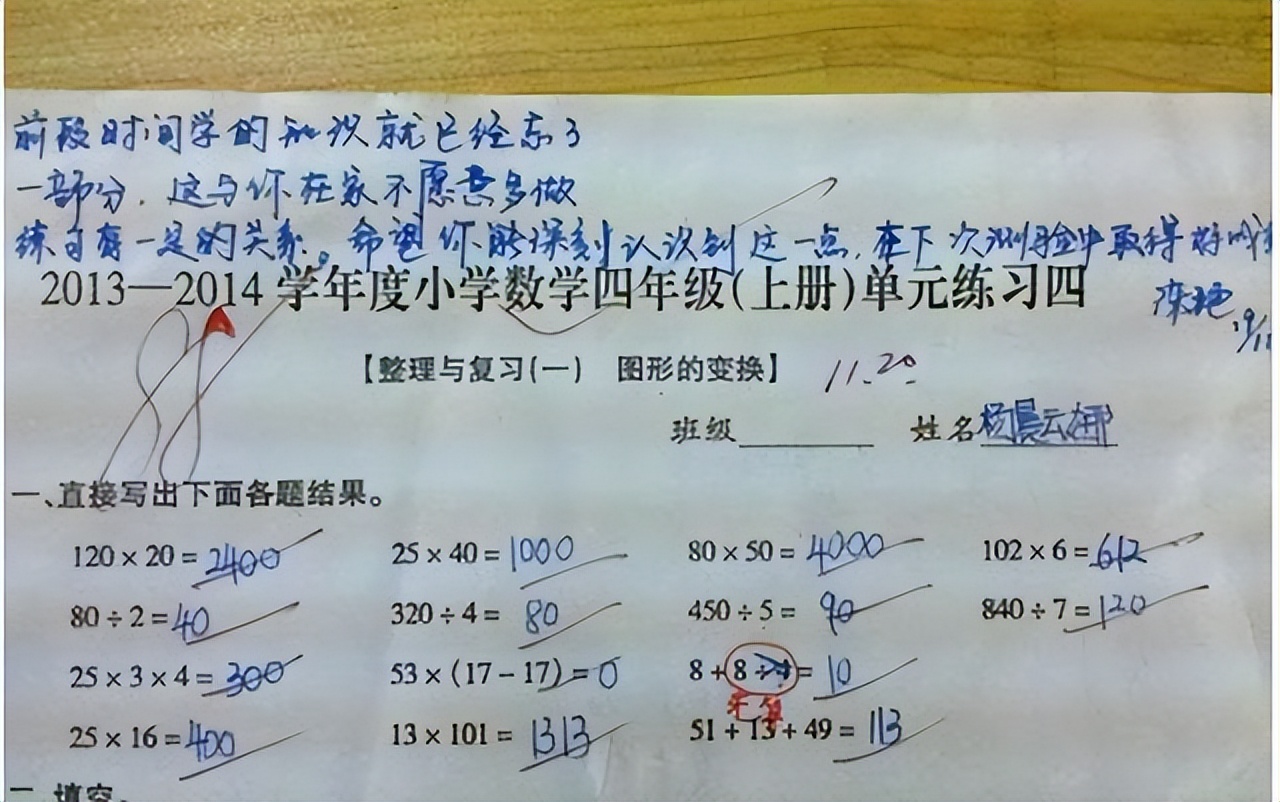 前段时间学的知识就已经忘了
一部分，这与你在家不愿意多做
练习有一定的关系。希望你能深刻认识到这一点，在下次测验中取得好成
2013—2014学年度小学数学四年级(上册)单元练习四
88
【整理与复习(一) 图形的变换】 11.20
班级 姓名 杨晨云
一、直接写出下面各题结果。
120 × 20 = 2400 25 × 40 = 1000 80 × 50 = 4000 102 × 6 = 612
80 ÷ 2 = 40 320 ÷ 4 = 80 450 ÷ 5 = 90 840 ÷ 7 = 120
25 × 3 × 4 = 300 53 × (17 - 17) = 0 8 + 8 ÷ 4 = 10
先算
25 × 16 = 400 13 × 101 = 1313 51 + 13 + 49 = 113
二、填空。